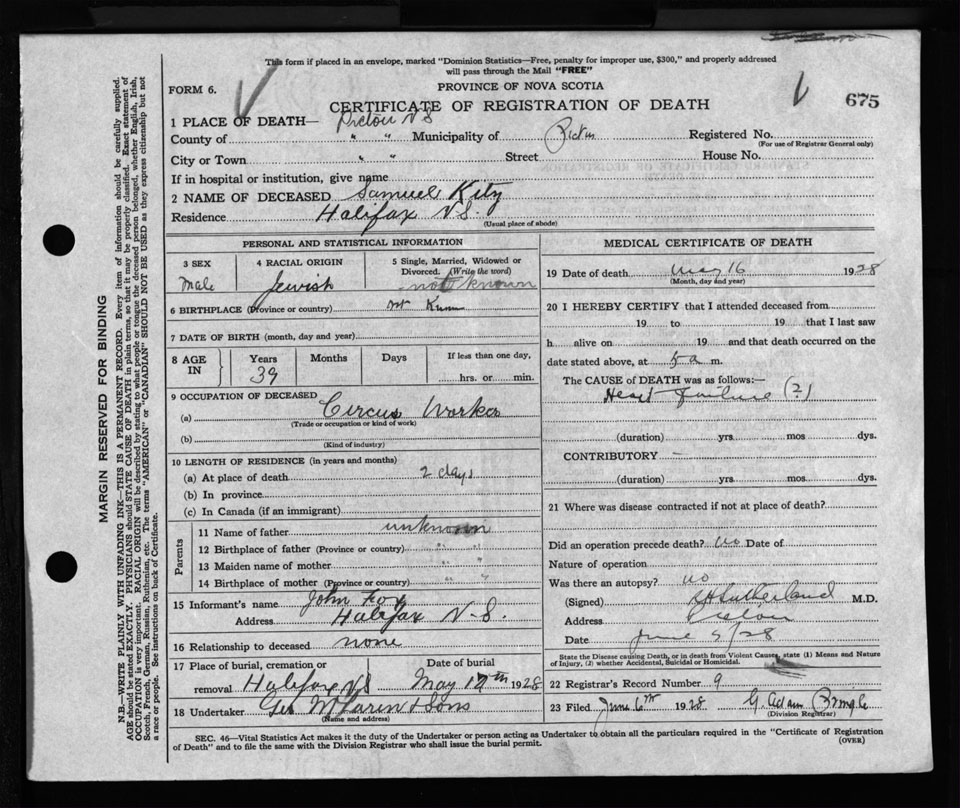 This form if placed in an envelope, marked "Dominion Statistics—Free, penalty for improper use, $300," and properly addressed
will pass through the Mail "FREE"
FORM 6.
PROVINCE OF NOVA SCOTIA
CERTIFICATE OF REGISTRATION OF DEATH
675
1 PLACE OF DEATH— Pictou N S
County of " " Municipality of Pictou Registered No.
(For use of Registrar General only)
City or Town " " Street House No.
If in hospital or institution, give name
2 NAME OF DECEASED Samuel Kitz
Residence Halifax N.S.
(Usual place of abode)
PERSONAL AND STATISTICAL INFORMATION
3 SEX
Male
4 RACIAL ORIGIN
Jewish
5 Single, Married, Widowed or
Divorced. (Write the word)
not known
6 BIRTHPLACE (Province or country) not
7 DATE OF BIRTH (month, day and year)
8 AGE IN
Years Months Days If less than one day,
39 hrs. or min.
9 OCCUPATION OF DECEASED
(a) Circus Worker
(Trade or occupation or kind of work)
(b)
(Kind of industry)
10 LENGTH OF RESIDENCE (in years and months)
(a) At place of death 2 days
(b) In province
(c) In Canada (if an immigrant)
Parents
11 Name of father unknown
12 Birthplace of father (Province or country) " "
13 Maiden name of mother " "
14 Birthplace of mother (Province or country) " "
15 Informant's name John Fox
Address Halifax N.S.
16 Relationship to deceased none
17 Place of burial, cremation or Date of burial
removal Halifax NS May 17th 1928
18 Undertaker Geo McLaren & Sons
(Name and address)
MEDICAL CERTIFICATE OF DEATH
19 Date of death May 16 1928
(Month, day and year)
20 I HEREBY CERTIFY that I attended deceased from
19 to 19 that I last saw
h alive on 19 and that death occurred on the
date stated above, at 5 a m.
The CAUSE of DEATH was as follows:—
Heart Failure (?)
(duration) yrs. mos dys.
CONTRIBUTORY —
(duration) yrs. mos. dys.
21 Where was disease contracted if not at place of death?
Did an operation precede death? no Date of
Nature of operation
Was there an autopsy? no
(Signed) Sutherland M.D.
Address Pictou
Date June 5/28
State the Disease causing Death, or in death from Violent Causes, state (1) Means and Nature
of Injury, (2) whether Accidental, Suicidal or Homicidal.
22 Registrar's Record Number 9
23 Filed June 6th 1928 G. Adam Pringle
(Division Registrar)
SEC. 46—Vital Statistics Act makes it the duty of the Undertaker or person acting as Undertaker to obtain all the particulars required in the "Certificate of Registration
of Death" and to file the same with the Division Registrar who shall issue the burial permit.
(OVER)
MARGIN RESERVED FOR BINDING
N.B.—WRITE PLAINLY WITH UNFADING INK—THIS IS A PERMANENT RECORD. Every item of information should be carefully supplied.
AGE should be stated EXACTLY. PHYSICIANS should STATE CAUSE OF DEATH in plain terms, so that it may be properly classified. Exact statement of
OCCUPATION is very important. RACIAL ORIGIN will be described by stating to what people or tongue the deceased person belonged, whether English, Irish,
Scotch, French, German, Russian, Ruthenian, etc. The terms "AMERICAN" or "CANADIAN" SHOULD NOT BE USED as they express citizenship but not
a race or people. See instructions on back of Certificate.